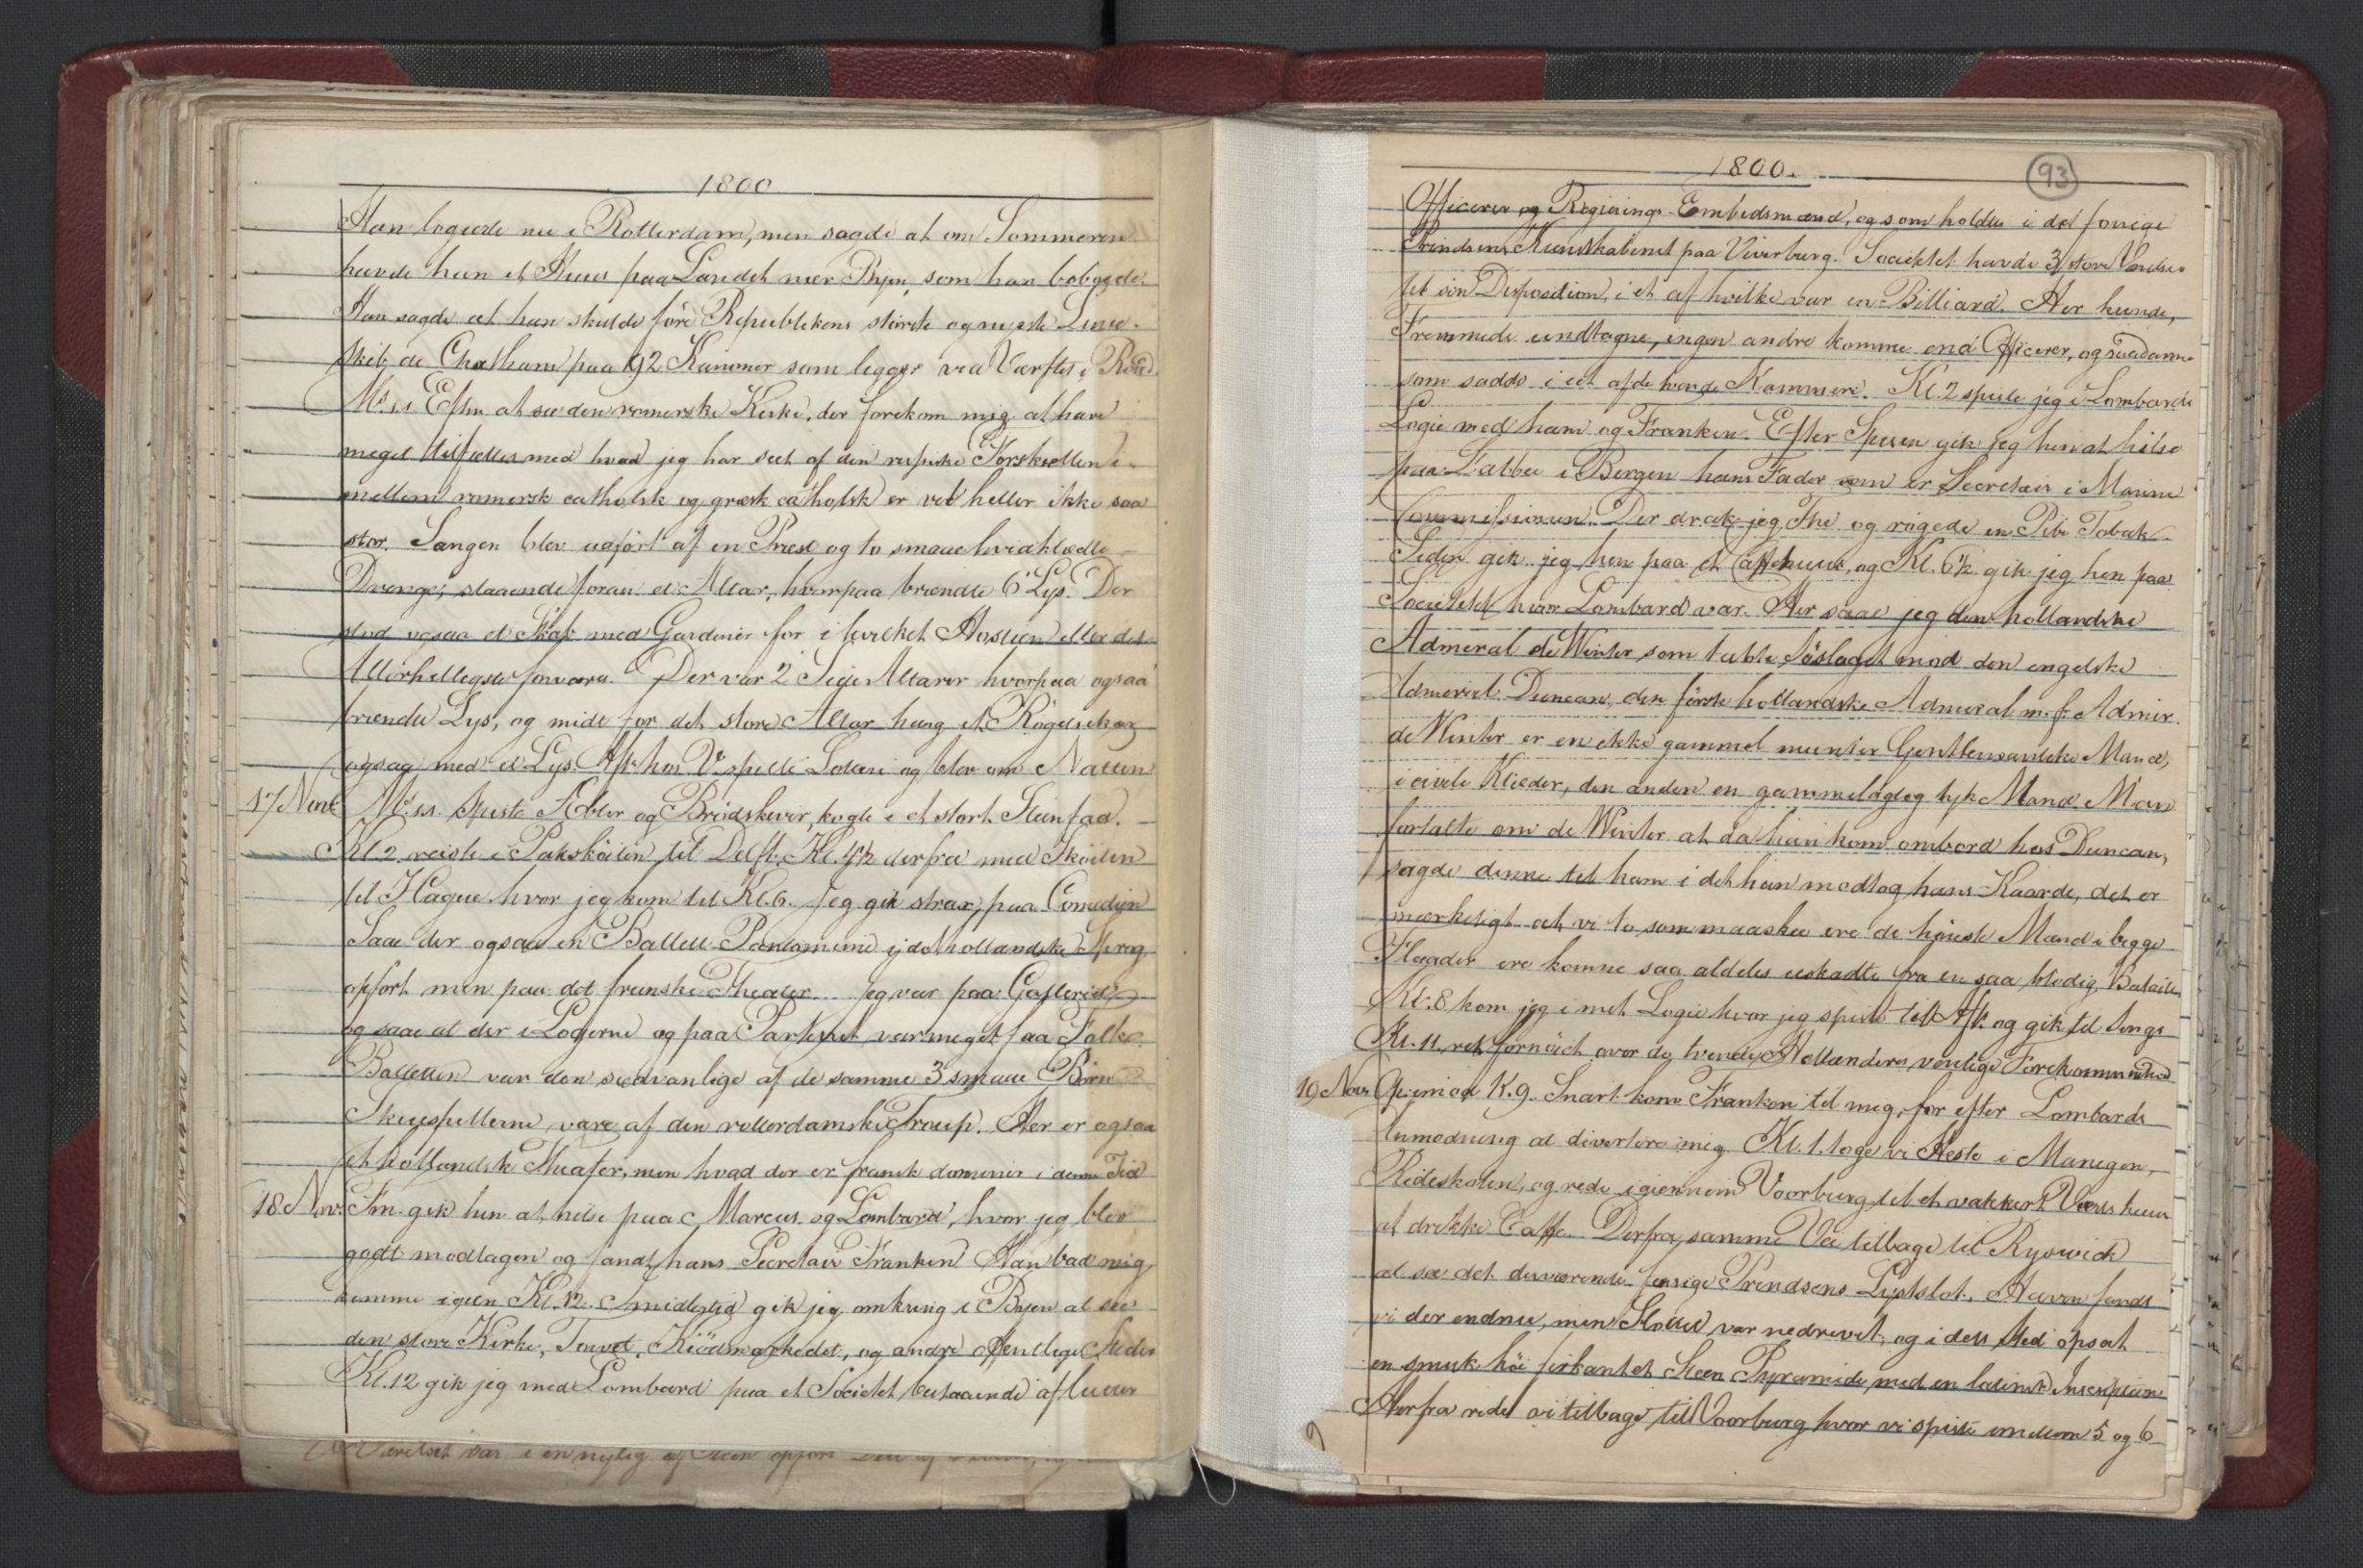 1800
Han logerte nu i Rotterdam, men sagde at om Sommeren
havde han et Huus paa Landet nær Byen, som han beboede.
Han sagde at han skulde före Republikens störste og nyeste Linie-
skib de Chatham paa 92 Kanoner som ligger ved Værftet i Rotted.
M. is. Eftm at see den romerske Kirke, der forekom mig at have
meget tilfælles med hvad jeg har seet af den russiske Forskiellen i-
mellem romersk catholsk og græsk catholsk er vel heller ikke saa
stor. Sangen blev udfört af en Præst og to smaae hvidklædte
Drenge, staaende foran et Altar, hvorpaa brændte 6 Lys. Der
stod ogsaa et Skab med Gardiner for i hvilket Hostien eller det
Allerhelligste forvares. Der var 2 Side Altarer hvorpaa ogsaa
brændte Lys, og midt for det store Altar hang et Rögelsekar
ogsaa med et Lys. Aft. hos V. spillte Lotteri og blev om Natten
17 Nov M. is. spiste Æbler og Brödskiver, kogte i et stort Steenfad.
Kl. 2 reiste i Pakskoiten til Delft. Kl. 4½ derfra med Skoiten
til Hague hvor jeg kom til Kl. 6. Jeg gik strax paa Comedien
Saae der ogsaa en Ballett Pantomime i det hollandske Sprog
opfört men paa det franske Theater. Jeg var paa Galleriet
og saae at der i Logerne og paa Parterret var meget faa Folk.
Balletten var den sædvanlige af de samme 3 smaae Börn
Skuespillerne vare af den rotterdamske Troup. Her er ogsaa
et hollandsk Theater, men hvad der er fransk dominerer i denne Tid
18 Nov. Fm. gik hen at hilse paa Marcus og Lombard, hvor jeg blev
godt modtagen og fandt hans Secretair Franken Han bad mig
komme igien Kl. 12. Imidlertid gik jeg omkring i Byen at see
den store Kirke, Torvet, Kiödmarkedet, og andre offentlige Steder
Kl. 12 gik jeg med Lombard paa et Societet bestaaende af luuter
Værelset var i en nylig af Steen opfört Deel af
1800.
93
Officerer og Regierings-Embedsmænd, og som holdtes i det forrige
Prindsens Kunstkabinet paa Viverburg. Societetet havde 3 store Værelser
til sin Disposition, i et af hvilke var en Billiard. Her kunde,
Fremmede undtagne, ingen andre komme end Officerer, og saadanne
som sadde i et af de höye Kammere. Kl. 2 spiste jeg i Lombards
Logie med ham og Franken. Efter Spisen gik jeg hen at hilse
paa Labbee i Bergen hans Fader som er Secretair i Marine
Commissionen. Der drak jeg The og rögede en Pibe Tobak.
Siden gik jeg hen paa et Caffehuus, og Kl. 6½ gik jeg hen paa
Societetet hvor Lombard var. Her saae jeg den hollandske
Admiral de Winter som tabte Söslaget mod den engelske
Admiral Duncan, den förste hollandske Admiral m. fl. Admir.
de Winter er en ikke gammel munter Gentlemanlike Mand,
i civile Klæder, den anden en gammelagtig tyk Mand. Man
fortalte om de Winter at da han kom ombord hos Duncan,
sagde denne til ham i det han modtog hans Kaarde, det er
mærkeligt at vi to som maaskee ere de höieste Mænd i begge
Flaader ere komne saa aldeles uskadte fra en saa blodig Bataille
Kl. 8 kom jeg i mit Logie hvor jeg spiste til Aft. og gik til Sengs
Kl. 11, ret fornöiet over de tvende Hollænderes venlige Forekommenhed
19 Nov. Op imod K. 9. Snart kom Franken til mig, for efter Lombards
Anmodning at divertere mig. Kl. 1. toge vi Heste i Manegen,
Rideskolen, og rede igiennem Voorburg til et vakkert Vertshuus
at drikke Caffe. Derfra samme Vei tilbage til Ryswick
at see det derværende forrige Prindsens Lystslot. Haven fandt
vi der endnu, men Slottet var nedrevet, og i dets Sted opsat
en smuk höi firkantet Steen Pyramide med en latinsk Inscription
Herfra rede vi tilbage til Voorburg hvor vi spiste imellem 5 og 6